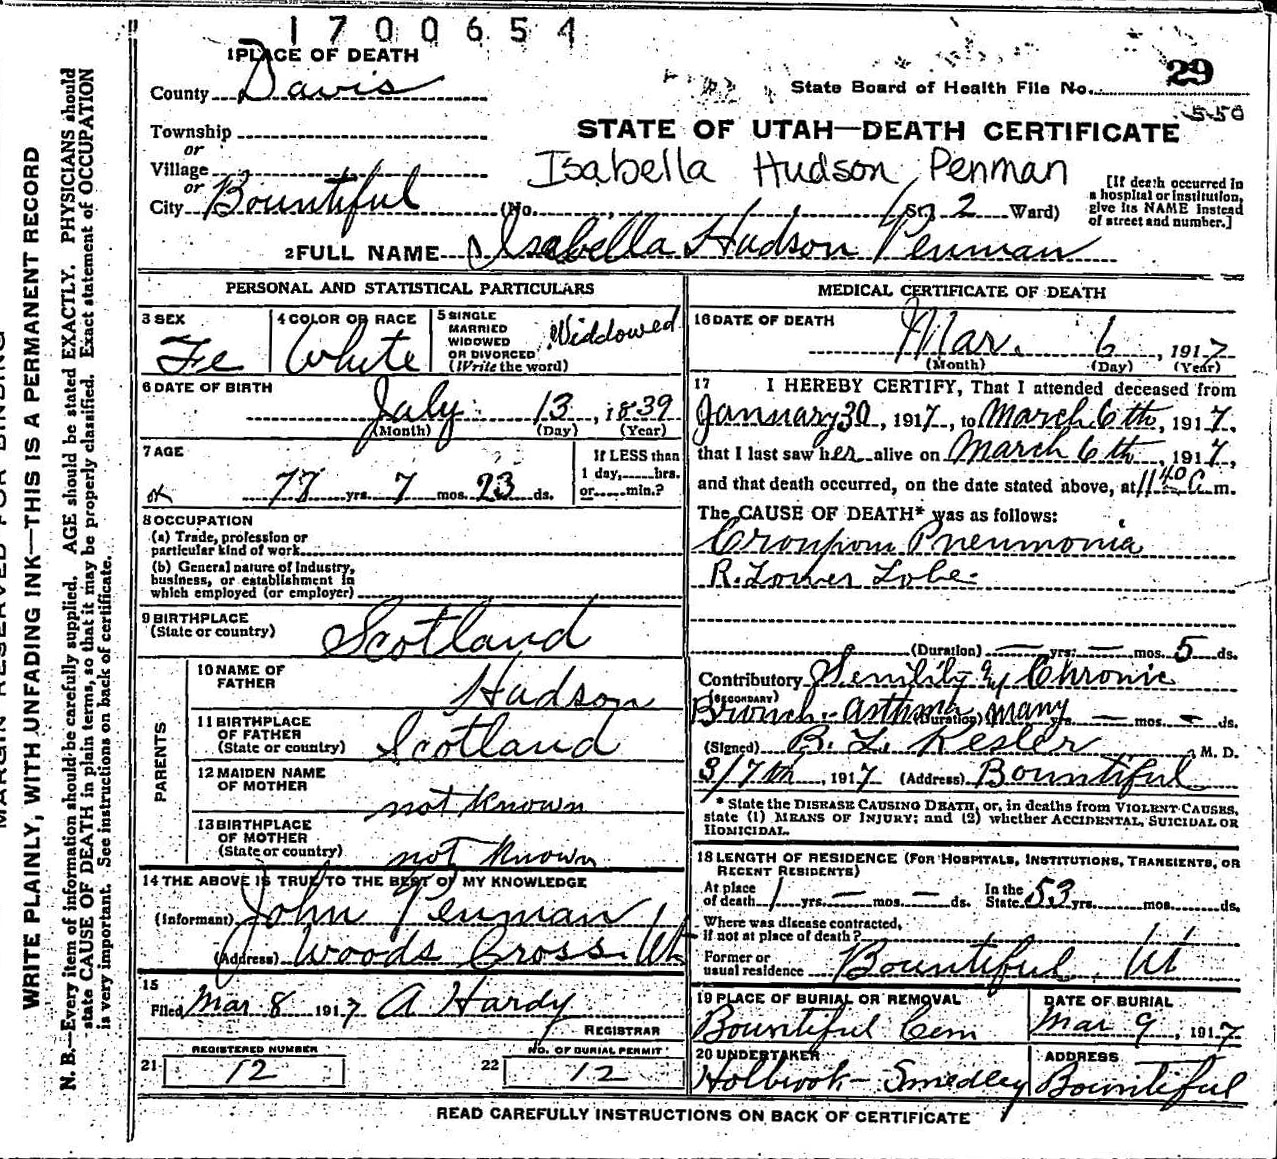 1700654
1 PLACE OF DEATH
County Davis
Township
or
Village
or
City Bountiful
29
State Board of Health File No.
550
STATE OF UTAH—DEATH CERTIFICATE
Isabella Hudson Penman
(No. , St.; 2 Ward)
[If death occurred in
a hospital or institution,
give its NAME instead
of street and number.]
2 FULL NAME Isabella Hudson Penman
PERSONAL AND STATISTICAL PARTICULARS
3 SEX
Fe
4 COLOR OR RACE
White
5 SINGLE
MARRIED
WIDOWED
OR DIVORCED
(Write the word)
Widdowed
6 DATE OF BIRTH
July 13, 1839
(Month) (Day) (Year)
7 AGE
77 yrs. 7 mos. 23 ds.
If LESS than
1 day, hrs.
or min.?
8 OCCUPATION
(a) Trade, profession or
particular kind of work
(b) General nature of industry,
business, or establishment in
which employed (or employer)
9 BIRTHPLACE
(State or country)
Scotland
PARENTS
10 NAME OF
FATHER
Hudson
11 BIRTHPLACE
OF FATHER
(State or country)
Scotland
12 MAIDEN NAME
OF MOTHER
not known
13 BIRTHPLACE
OF MOTHER
(State or country)
not known
14 THE ABOVE IS TRUE TO THE BEST OF MY KNOWLEDGE
(Informant) John Penman
(Address) Woods Cross Ut
15
Filed Mar 8 1917 A Hardy
REGISTRAR
REGISTERED NUMBER
21 12
NO. OF BURIAL PERMIT
22 12
MEDICAL CERTIFICATE OF DEATH
16 DATE OF DEATH
Mar. 6, 1917
(Month) (Day) (Year)
17 I HEREBY CERTIFY, That I attended deceased from
January 30, 1917, to March 6th, 1917,
that I last saw her alive on March 6th, 1917,
and that death occurred, on the date stated above, at 11 40 A m.
The CAUSE OF DEATH* was as follows:
Croupom Pneumonia
R. Lower Lobe.
(Duration) — yrs. — mos. 5 ds.
Contributory Senility & Chronic
(SECONDARY)
Bronch. asthma (Duration) many yrs. — mos. — ds.
(Signed) B. L. Kesler M. D.
3/7th, 1917 (Address) Bountiful
* State the DISEASE CAUSING DEATH, or, in deaths from VIOLENT CAUSES,
state (1) MEANS OF INJURY; and (2) whether ACCIDENTAL, SUICIDAL OR
HOMICIDAL.
18 LENGTH OF RESIDENCE (FOR HOSPITALS, INSTITUTIONS, TRANSIENTS, OR
RECENT RESIDENTS)
At place
of death 1 yrs. — mos. — ds.
In the
State 53 yrs. mos. ds.
Where was disease contracted,
if not at place of death?
Former or
usual residence Bountiful, Ut
19 PLACE OF BURIAL OR REMOVAL
Bountiful Cem
DATE OF BURIAL
Mar 9, 1917
20 UNDERTAKER
Holbrook - Smedley
ADDRESS
Bountiful
READ CAREFULLY INSTRUCTIONS ON BACK OF CERTIFICATE
MARGIN RESERVED FOR BINDING
WRITE PLAINLY, WITH UNFADING INK—THIS IS A PERMANENT RECORD
N. B.—Every item of information should be carefully supplied. AGE should be stated EXACTLY. PHYSICIANS should
state CAUSE OF DEATH in plain terms, so that it may be properly classified. Exact statement of OCCUPATION
is very important. See instructions on back of certificate.